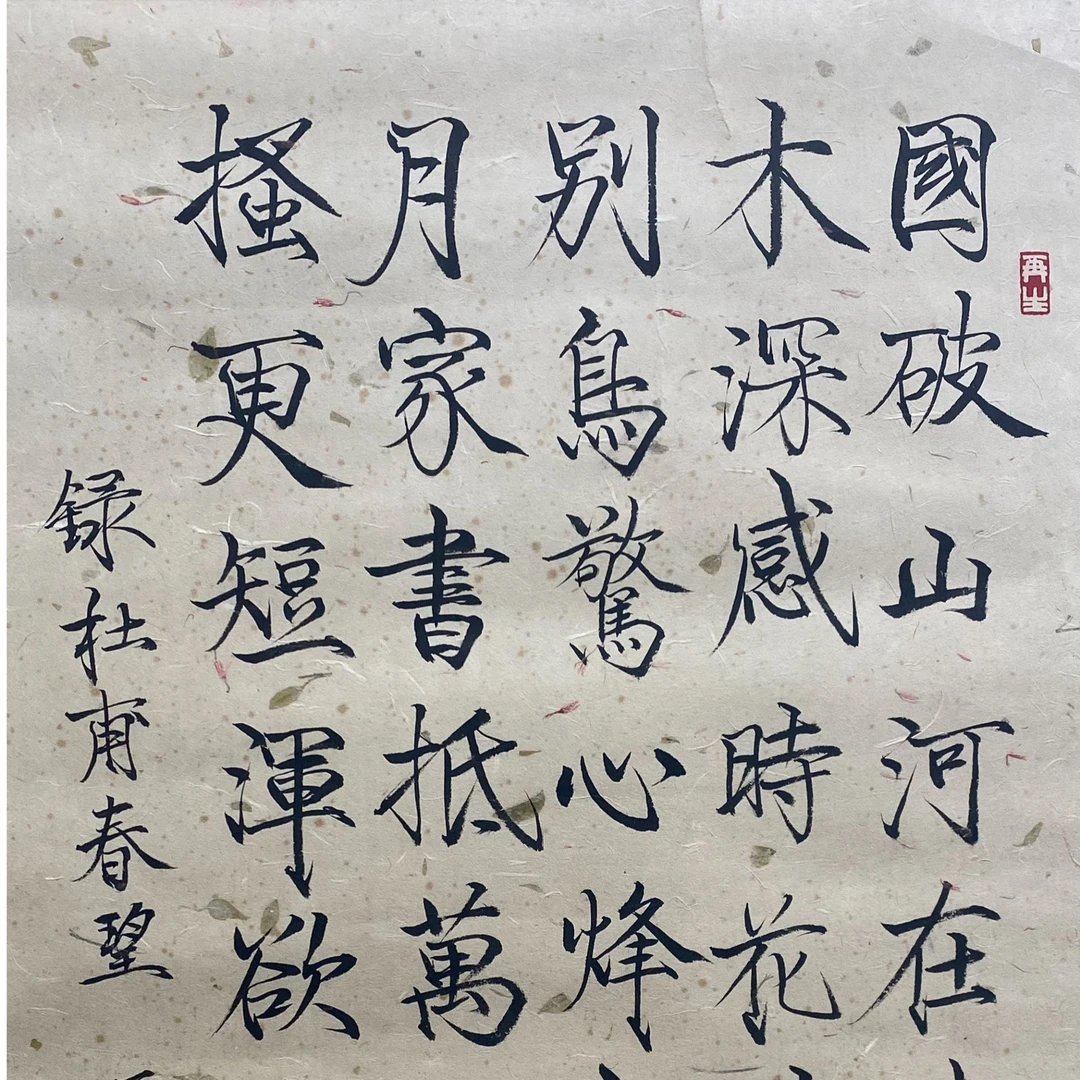 再生
國破山河在
木深感時花
別鳥驚心烽
月家書抵萬
搔更短渾欲
録杜甫春望